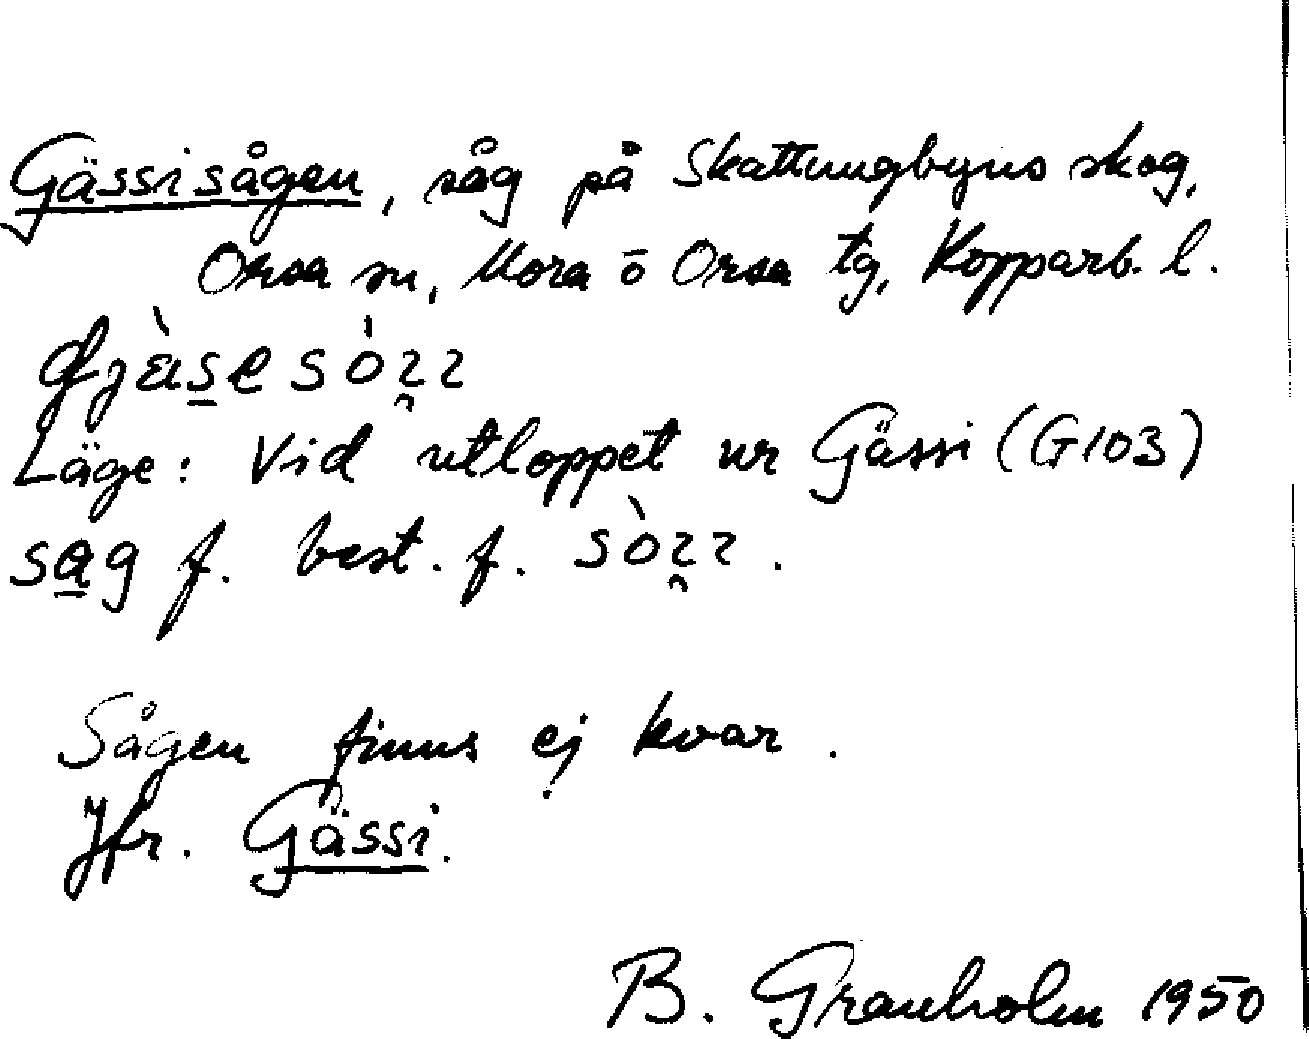 Gässisågen, såg på Skattungbyns skog,
Orsa sn, Mora ō Orsa tg, Kopparb. l.
Läge: Vid utloppet ur Gässi (G103)
sag f. best. f.
Sågen finns ej kvar.
Jfr. Gässi.
B. Granholm 1950